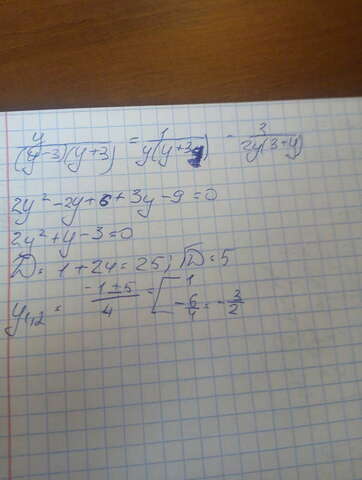 y/((y-3)(y+3)) = 1/(y(y+3)) - 3/(2y(3+y))
2y²-2y+6+3y-9=0
2y²+y-3=0
D = 1+24=25; √D=5
y₁,₂ = (-1±5)/4 = [ 1
-6/4 = -3/2